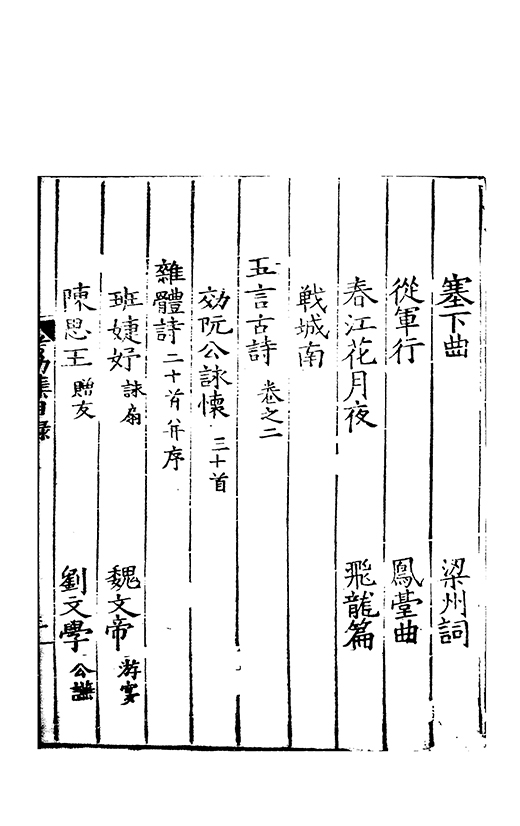 塞下曲　梁州詞
從軍行　鳳臺曲
春江花月夜　飛龍篇
戰城南
五言古詩 卷之二
効阮公詠懷 三十首
雜體詩 二十首并序
班婕妤 詠扇　魏文帝 游宴
陳思王 贈友　劉文學 公讌
集目錄